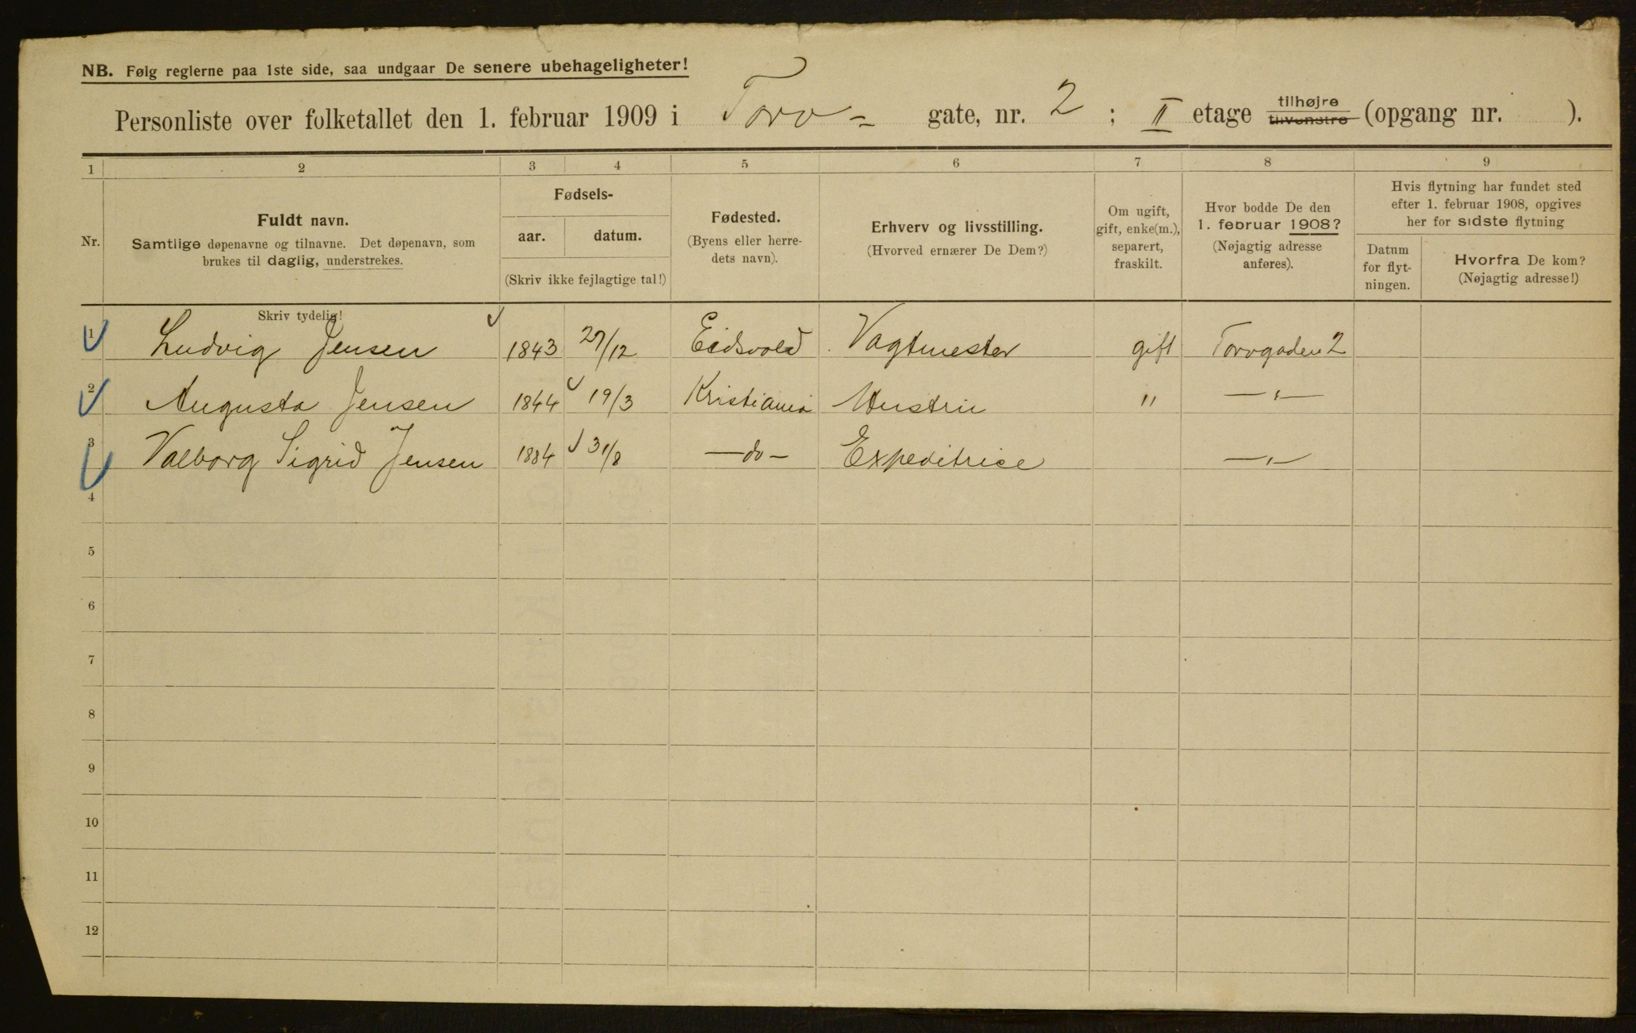 NB. Følg reglerne paa 1ste side, saa undgaar De senere ubehageligheter!
Personliste over folketallet den 1. februar 1909 i Torv- gate, nr. 2 ; II etage tilhøjre tilvenstre (opgang nr. ).
1 2 3 4 5 6 7 8 9
Nr.
Fuldt navn.
Samtlige døpenavne og tilnavne. Det døpenavn, som
brukes til daglig, understrekes.
Fødsels-
aar. datum.
(Skriv ikke fejlagtige tal!)
Fødested.
(Byens eller herre-
dets navn).
Erhverv og livsstilling.
(Hvorved ernærer De Dem?)
Om ugift,
gift, enke(m.),
separert,
fraskilt.
Hvor bodde De den
1. februar 1908?
(Nøjagtig adresse
anføres).
Hvis flytning har fundet sted
efter 1. februar 1908, opgives
her for sidste flytning
Datum
for flyt-
ningen.
Hvorfra De kom?
(Nøjagtig adresse!)
Skriv tydelig!
1 Ludvig Jensen 1843 27/12 Eidsvold Vagtmester gift Torvgaden 2
2 Augusta Jensen 1844 19/3 Kristiania Hustru " —"—
3 Valborg Sigrid Jensen 1884 31/8 —do— Expeditrice —"—
4
5
6
7
8
9
10
11
12